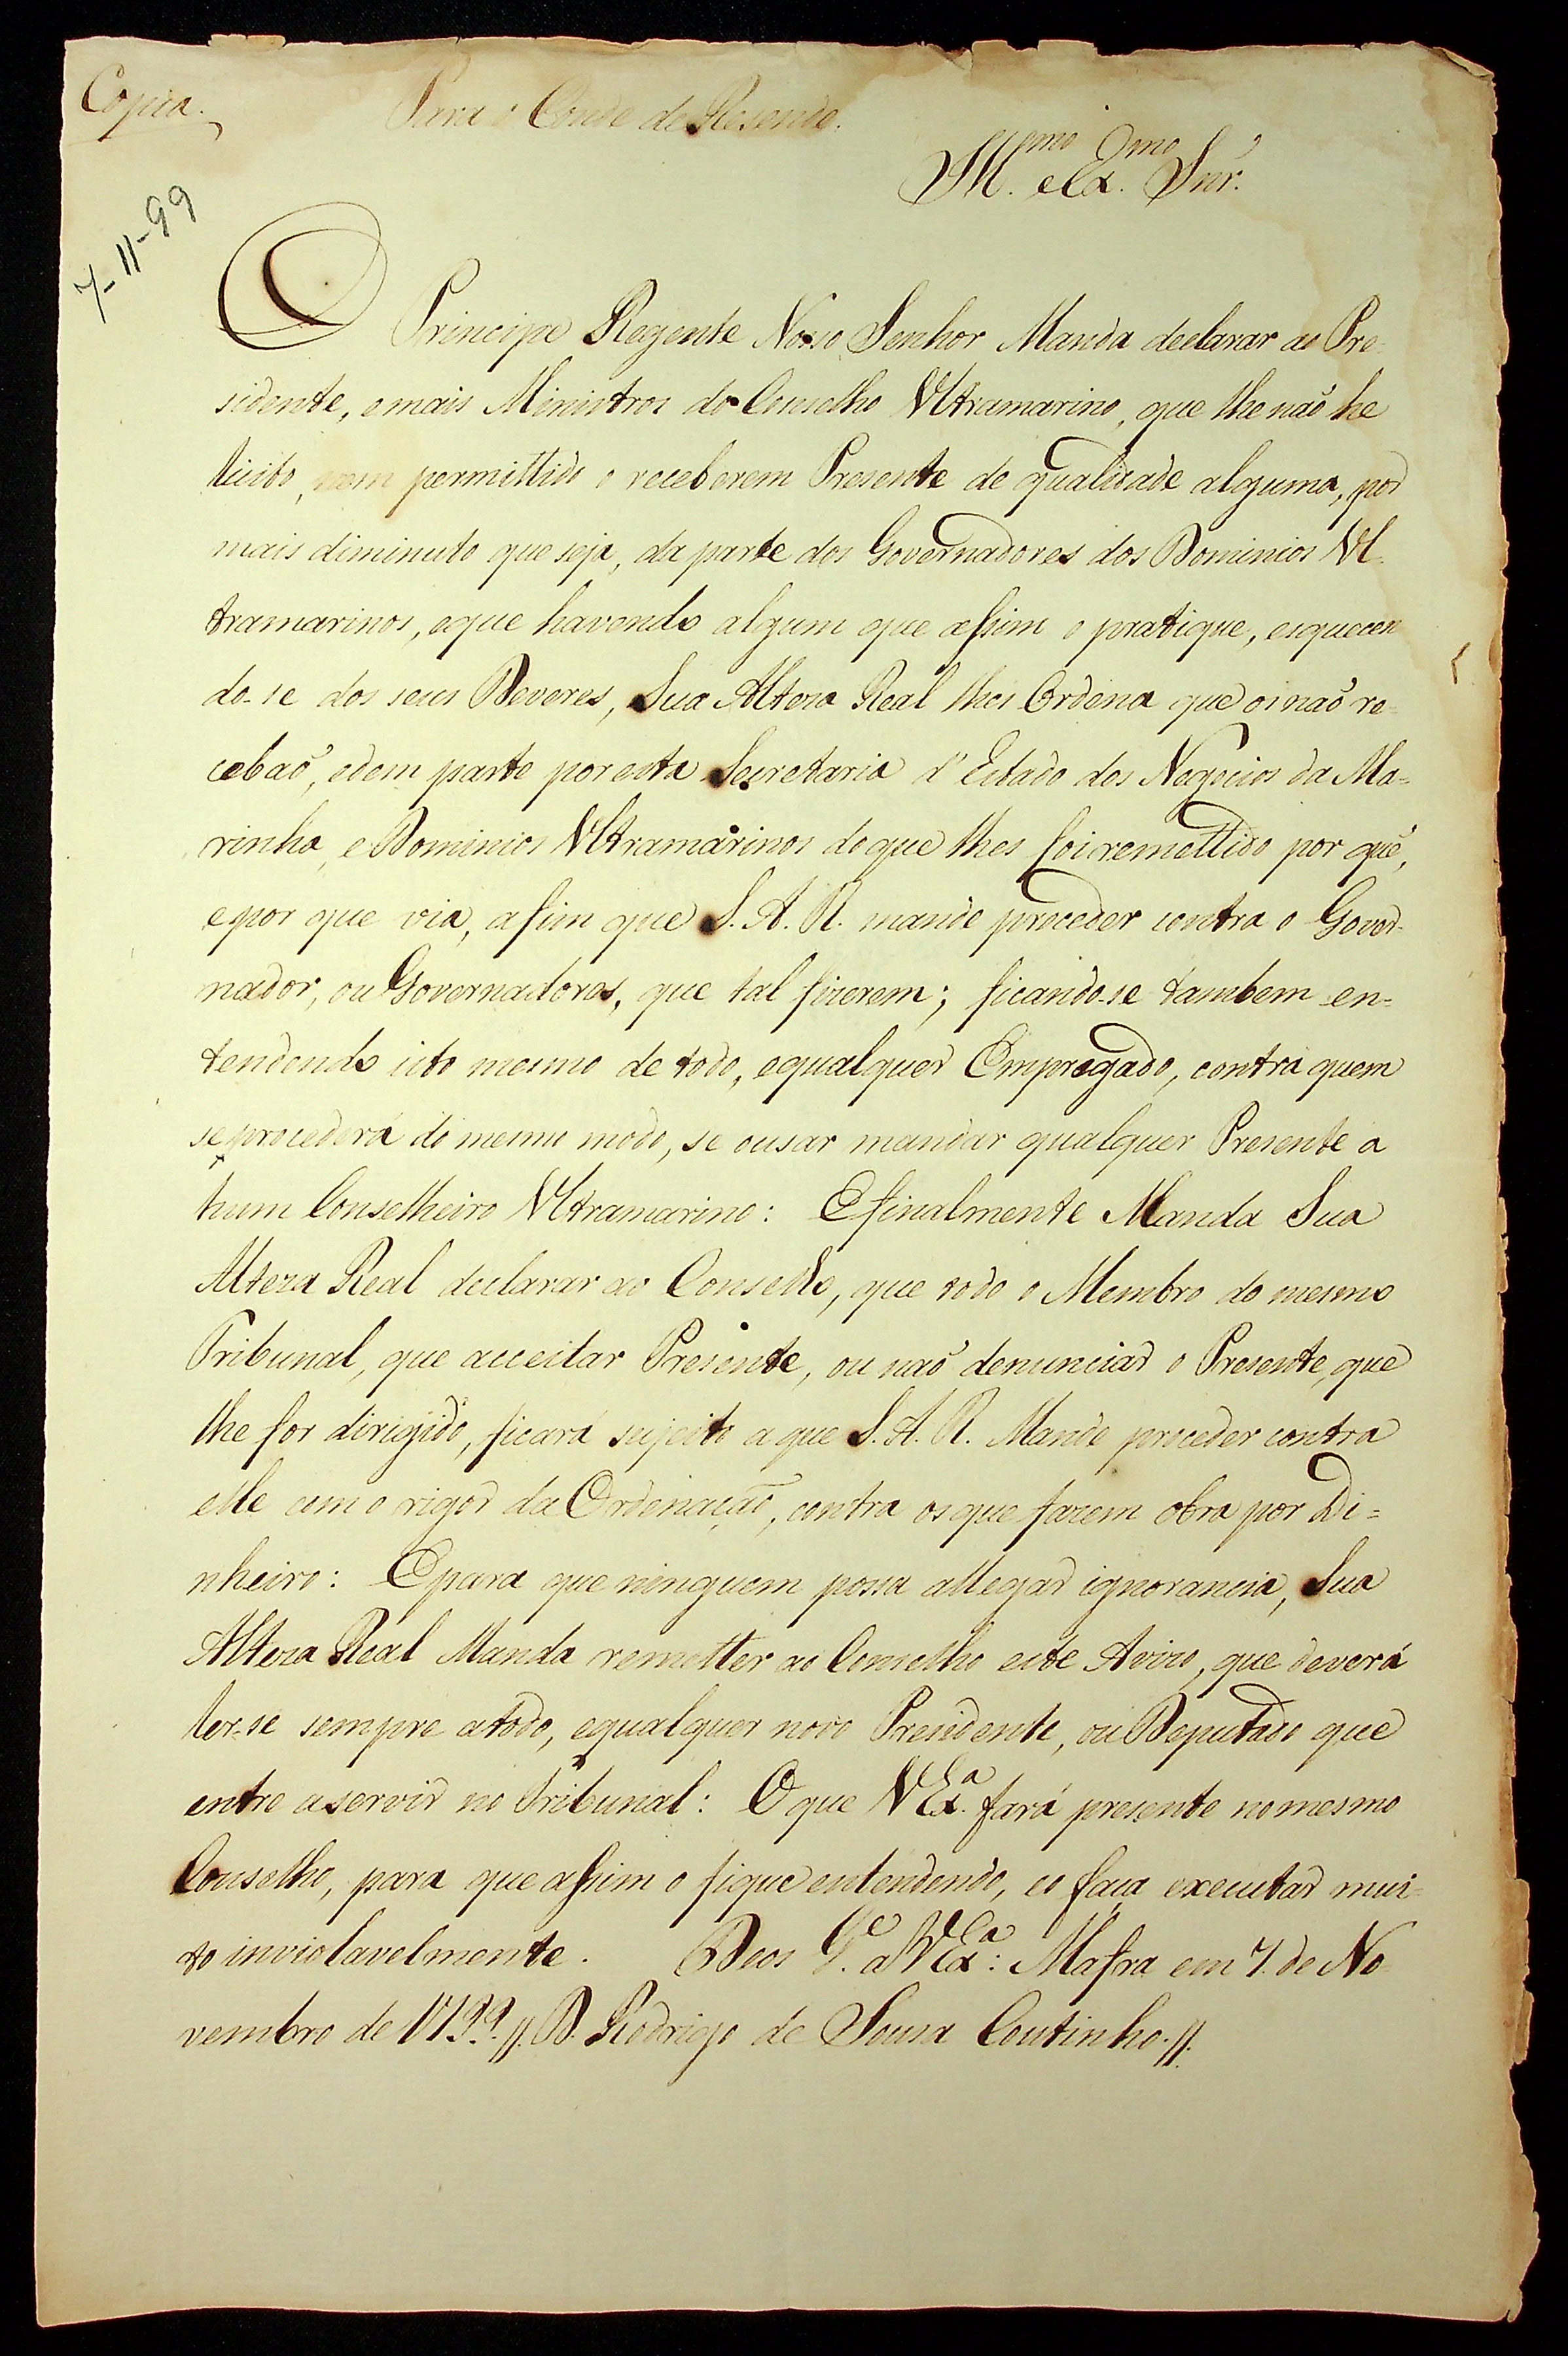 Copia.
Para o Conde de Resende.
Ill.mo e Ex.mo Snr.
7-11-99
O Principe Regente Nosso Senhor Manda declarar ao Pre-
sidente, e mais Ministros do Conselho Ultramarino, que lhe naõ he
licito, nem permittido o receberem Presente de qualidade alguma, por
mais diminuto que seja, da parte dos Governadores dos Dominios Ul-
tramarinos, e que havendo algum que assim o pratique, esquecen
do-se dos seus Deveres, Sua Alteza Real lhes Ordena que os naõ re-
cebaõ, e dem parte por esta Secretaria d'Estado dos Negocios da Ma-
rinha, e Dominios Ultramarinos do que lhes foi remettido por quê,
e por que via, a fim que S. A. R. mande proceder contra o Gover-
nador, ou Governadores, que tal fizerem; ficando-se tambem en-
tendendo isto mesmo de todo, e qualquer Empregado, contra quem
se procederá do mesmo modo, se ousar mandar qualquer Presente a
hum Conselheiro Ultramarino: E finalmente Manda Sua
Alteza Real declarar ao Conselho, que todo o Membro do mesmo
Tribunal, que acceitar Presente, ou naõ denunciar o Presente, que
lhe for dirigido, ficará sujeito a que S. A. R. Mande proceder contra
elle com o rigor da Ordenaçaõ, contra os que fazem obra por Di=
nheiro: E para que ninguem possa allegar ignorancia, Sua
Alteza Real Manda remetter ao Conselho este Avizo, que deverá
ler-se sempre a todo, e qualquer novo Presidente, ou Deputado que
entre a servir no Tribunal: O que V Ex.a fará presente no mesmo
Conselho, para que assim o fique entendendo, e o faça executar mui-
to inviolavelmente. Deos G.e a V Ex.a: Mafra em 7 de No
vembro de 1799. // D. Rodrigo de Sousa Coutinho. //